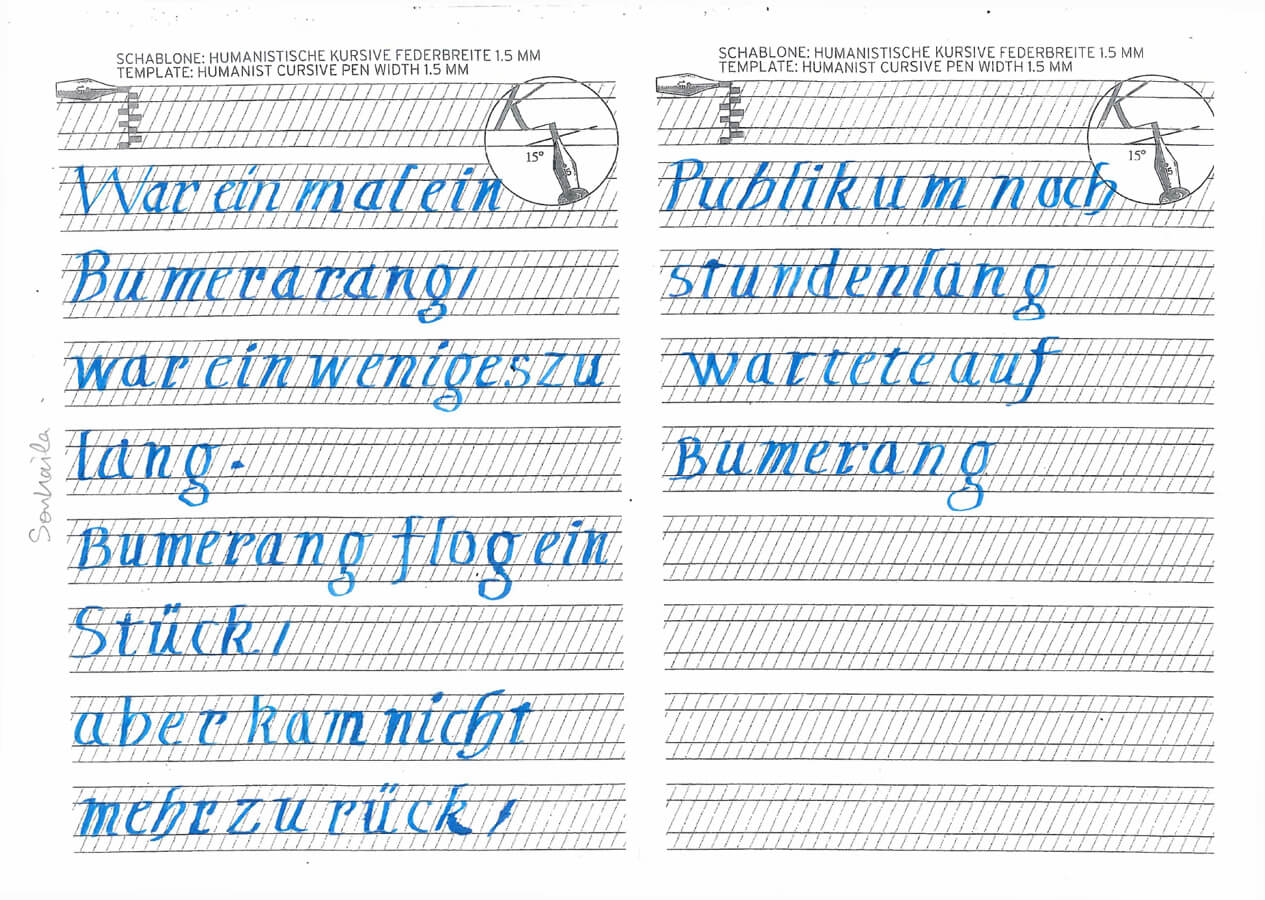 SCHABLONE: HUMANISTISCHE KURSIVE FEDERBREITE 1.5 MM
TEMPLATE: HUMANIST CURSIVE PEN WIDTH 1.5 MM
K
15°
War ein mal ein
Bumerarang,
war ein weniges zu
lang.
Bumerang flog ein
Stück,
aber kam nicht
mehr zurück,
SCHABLONE: HUMANISTISCHE KURSIVE FEDERBREITE 1.5 MM
TEMPLATE: HUMANIST CURSIVE PEN WIDTH 1.5 MM
K
15°
Publikum noch
stundenlang
wartete auf
Bumerang